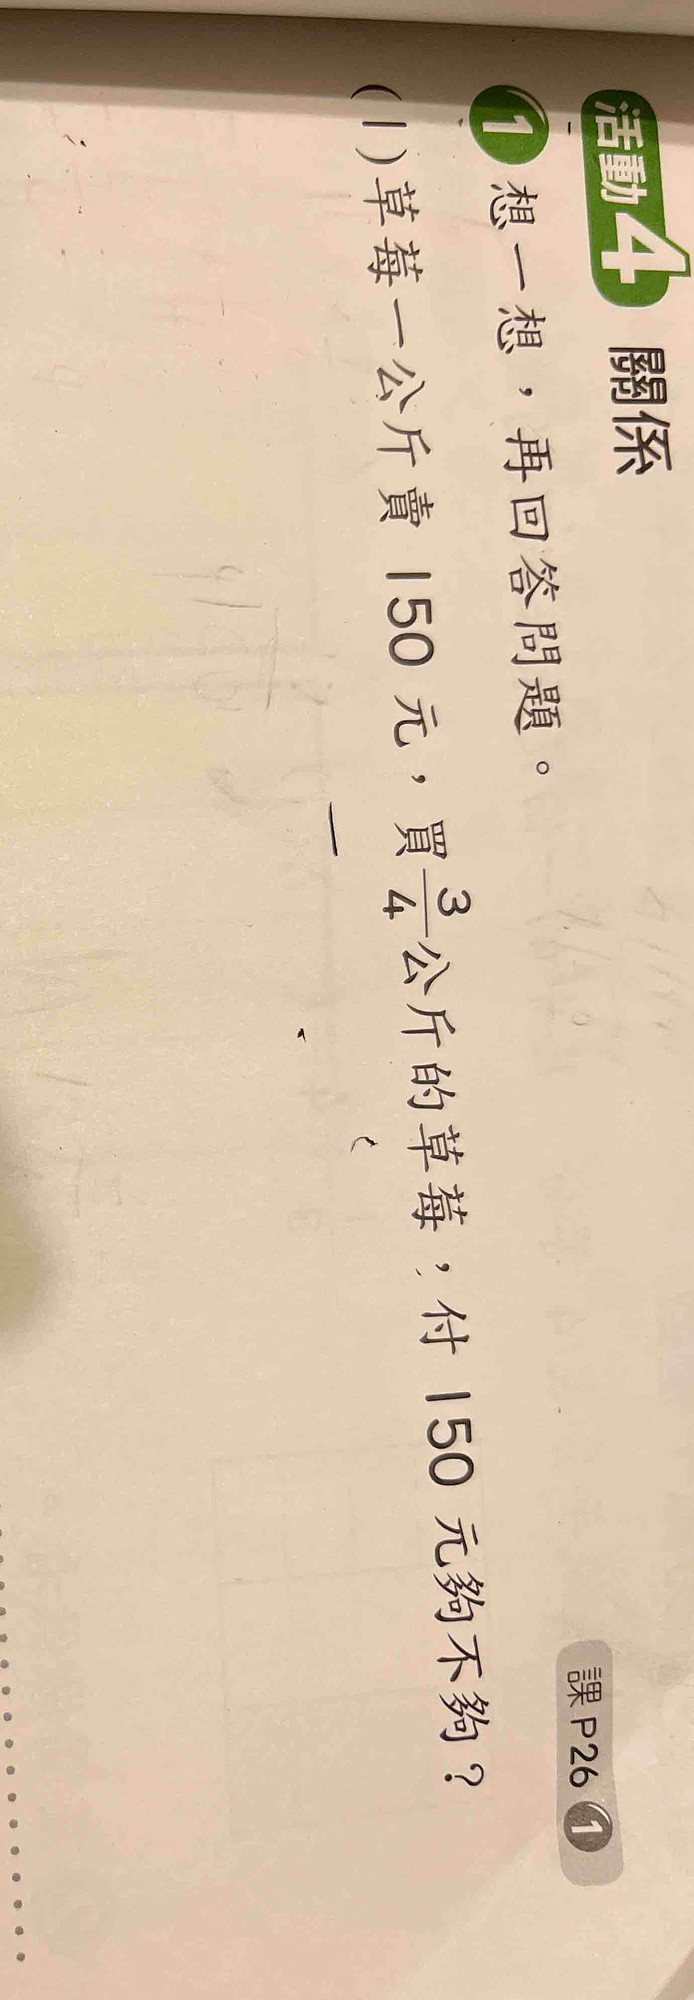 活動4 關係
課P26 1
1 想一想，再回答問題。
(1)草莓一公斤賣150元，買3/4公斤的草莓，付150元夠不夠？